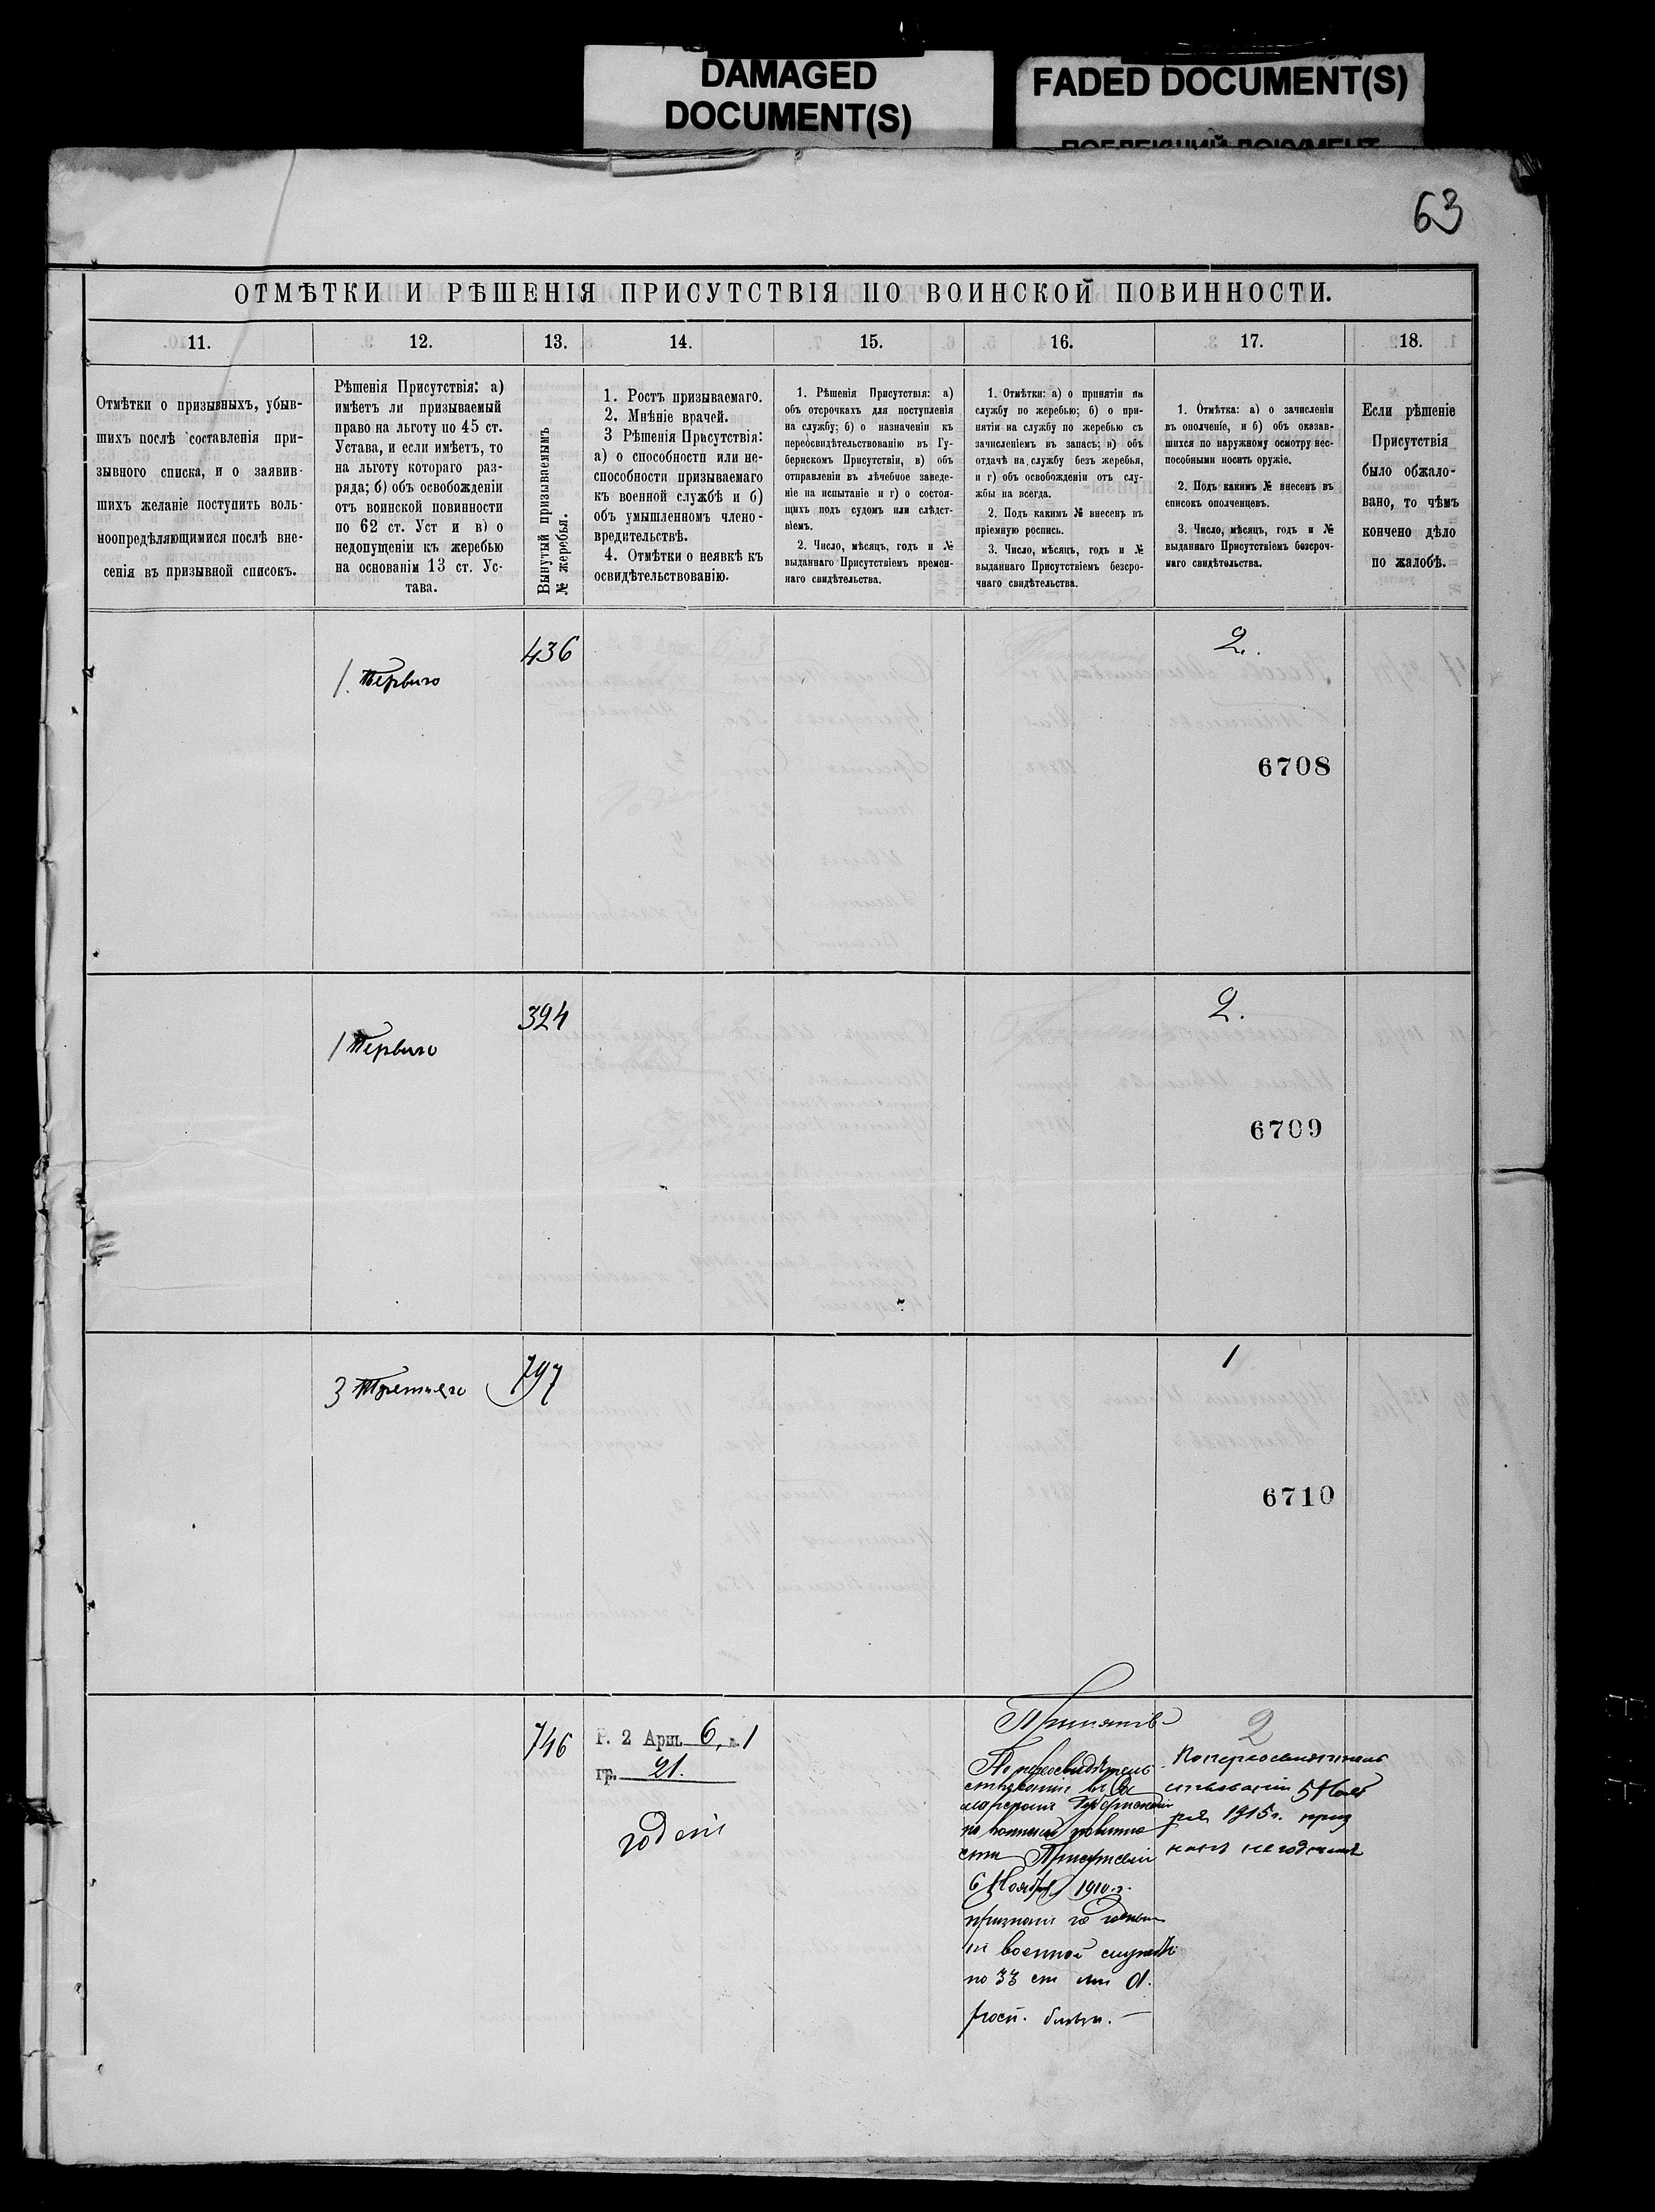 DAMAGED
DOCUMENT(S)
FADED DOCUMENT(S)
ПОБЛЕКШИЙ ДОКУМЕНТ
63
ОТМѢТКИ И РѢШЕНІЯ ПРИСУТСТВІЯ ПО ВОИНСКОЙ ПОВИННОСТИ.
11.
12.
13.
14.
15.
16.
17.
18.
Отмѣтки о призывныхъ, убыв-
шихъ послѣ составленія при-
зывного списка, и о заявив-
шихъ желаніе поступить воль-
ноопредѣляющимися послѣ вне-
сенія въ призывной списокъ.
Рѣшенія Присутствія: а)
имѣетъ ли призываемый
право на льготу по 45 ст.
Устава, и если имѣетъ, то
на льготу котораго раз-
ряда; б) объ освобожденіи
отъ воинской повинности
по 62 ст. Уст и в) о
недопущеніи къ жеребью
на основаніи 13 ст. Ус-
тава.
Вынутый призываемымъ
№ жеребья.
1. Ростъ призываемаго.
2. Мнѣніе врачей.
3 Рѣшенія Присутствія:
а) о способности или не-
способности призываемаго
къ военной службѣ и б)
объ умышленномъ члено-
вредительствѣ.
4. Отмѣтки о неявкѣ къ
освидѣтельствованію.
1. Рѣшенія Присутствія: а)
объ отсрочкахъ для поступленія
на службу; б) о назначеніи къ
переосвидѣтельствованію въ Гу-
бернскомъ Присутствіи, в) объ
отправленіи въ лѣчебное заведе-
ніе на испытаніе и г) о состоя-
щихъ подъ судомъ или слѣдст-
віемъ.
2. Число, мѣсяцъ, годъ и №
выданнаго Присутствіемъ времен-
наго свидѣтельства.
1. Отмѣтки: а) о принятіи на
службу по жеребью; б) о при-
нятіи на службу по жеребью съ
зачисленіемъ въ запасъ; в) объ
отдачѣ на службу безъ жеребья,
и г) объ освобожденіи отъ слу-
жбы на всегда.
2. Подъ какимъ № внесенъ въ
пріемную роспись.
3. Число, мѣсяцъ, годъ и №
выданнаго Присутствіемъ безсро-
чнаго свидѣтельства.
1. Отмѣтка: а) о зачисленіи
въ ополченіе, и б) объ оказав-
шихся по наружному осмотру нес-
пособными носить оружіе.
2. Подъ какимъ № внесенъ въ
списокъ ополченцевъ.
3. Число, мѣсяцъ, годъ и №
выданнаго Присутствіемъ безсроч-
наго свидѣтельства.
Если рѣшеніе
Присутствія
было обжало-
вано, то чѣмъ
кончено дѣло
по жалобѣ.
1. Перваго
436
2.
6708
1 Перваго
324
2.
6709
3 Третьяго
797
1
6710
746
Р. 2 Арш. 6, в. 1
гр. 21.
годенъ
Принятъ
По переосвидѣтель-
ствованіи въ Са
марскомъ Губернскомъ
по воинской повинно
сти Присутствіи
6 Ноября 1910 г.
признанъ годнымъ
къ военной службѣ
по 33 ст лит А.
росп. болѣзн.
2
По переосвидѣтель
ствованіи 5 Нояб
ря 1915 г. приз
нанъ негоднымъ